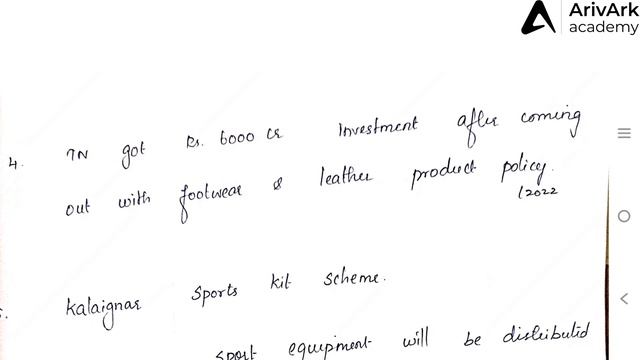 ArivArk
academy
4. TN got Rs. 6000 cr Investment after coming
out with footwear & leather product policy.
/2022
Kalaignar Sports kit scheme.
sport equipment will be distributed